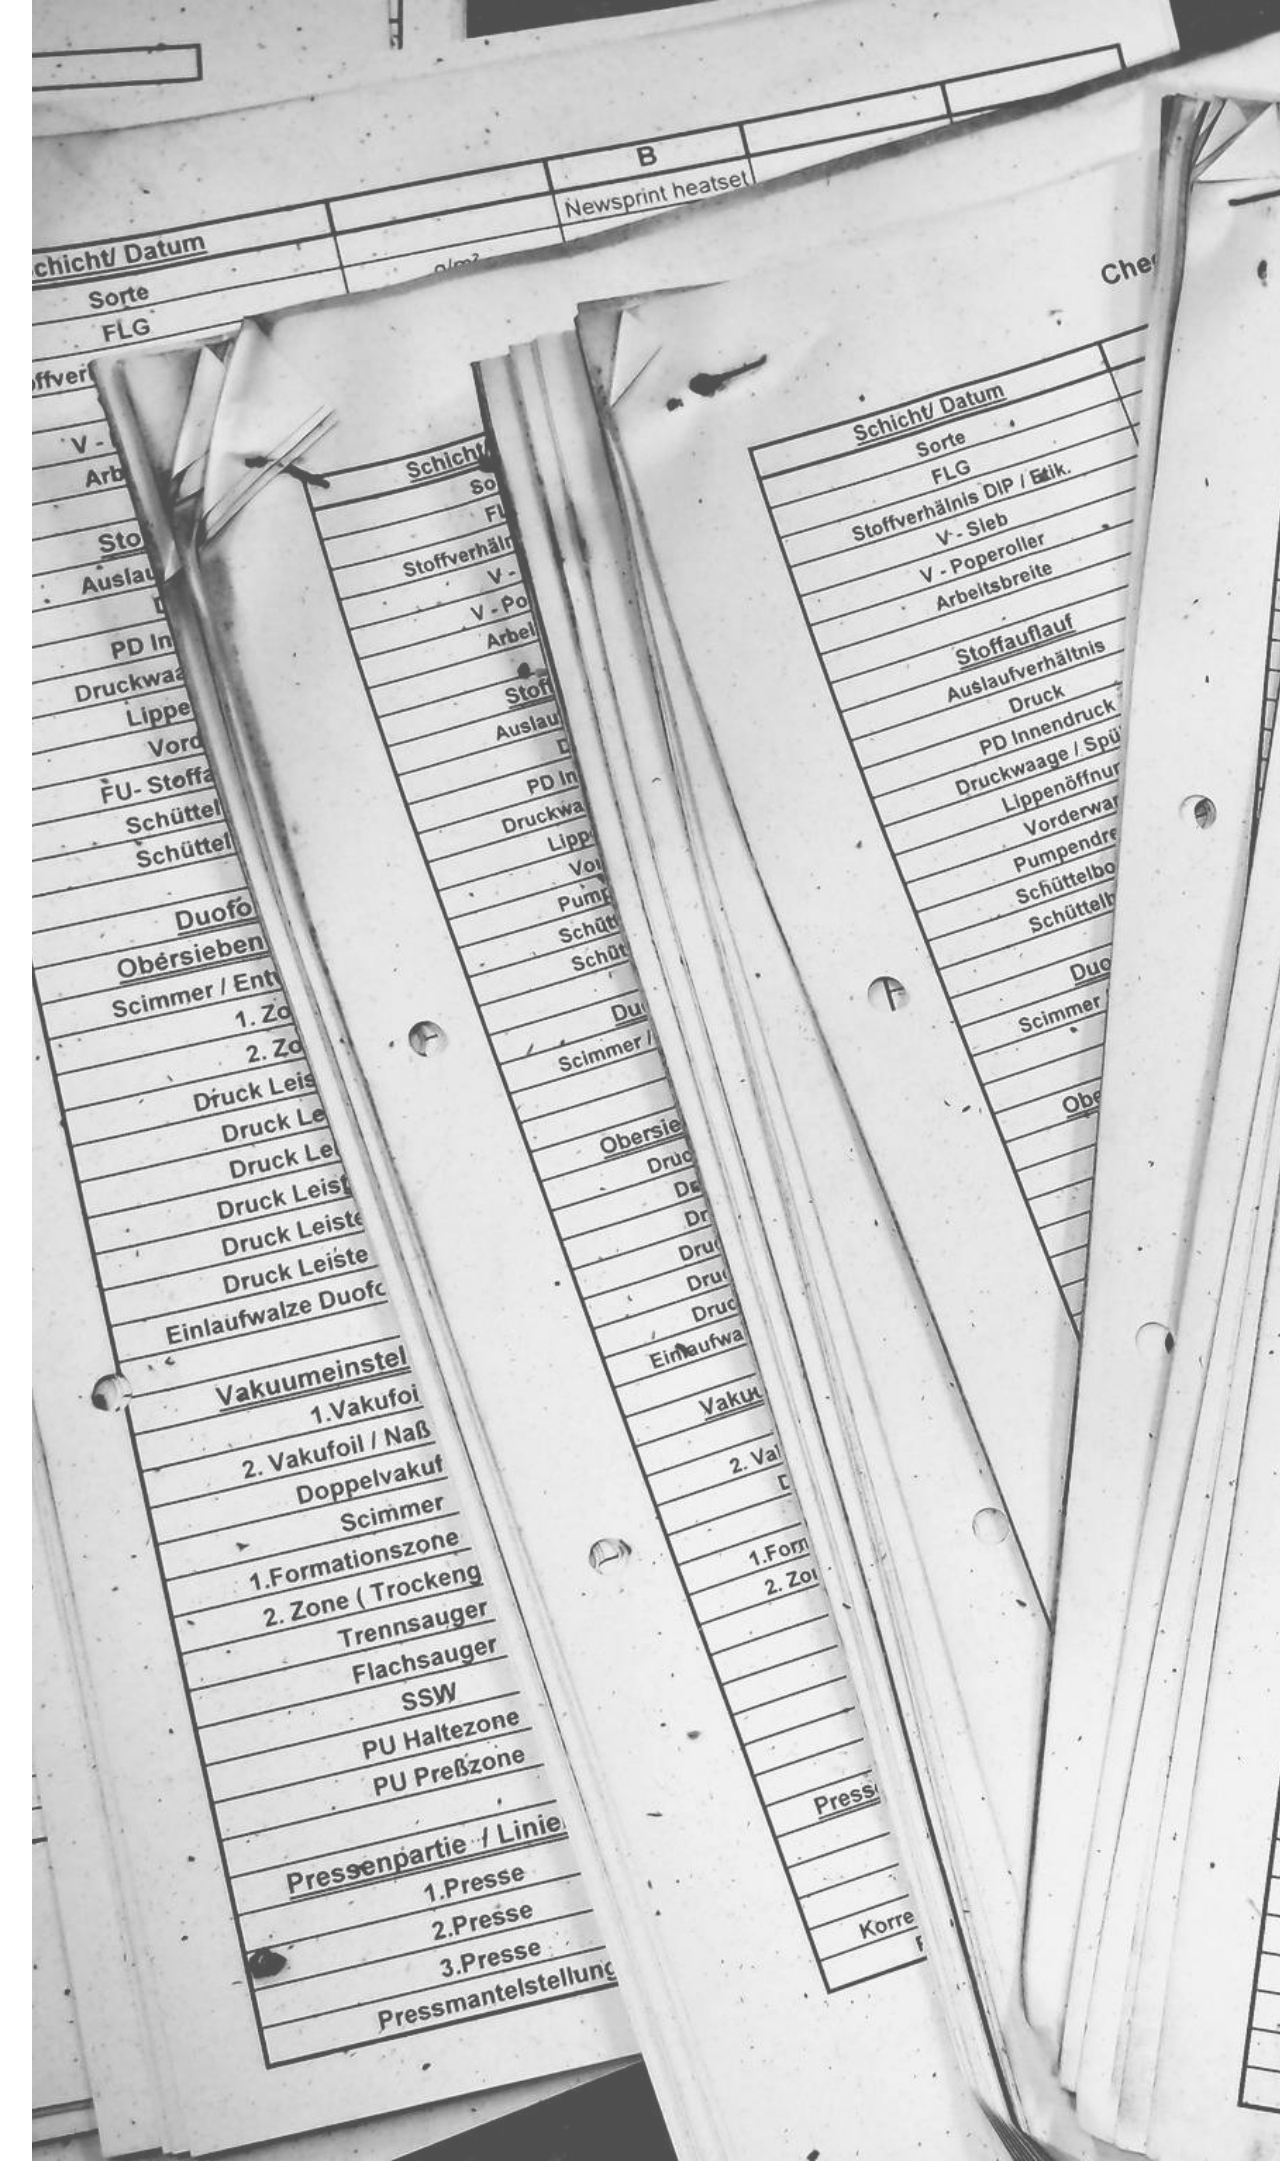 B
Newsprint heatset
chicht/ Datum
g/m²
Sorte
FLG
offver
V -
Arb
Sto
Auslau
PD In
Druckwaa
Lippe
Vord
FU- Stoffa
Schüttel
Schüttel
Duofo
Obersieben
Scimmer / Entw
1. Zo
2. Zo
Druck Leis
Druck Le
Druck Lei
Druck Leist
Druck Leiste
Druck Leiste
Einlaufwalze Duofo
Vakuumeinstel
1.Vakufoi
2. Vakufoil / Naß
Doppelvakuf
Scimmer
1.Formationszone
2. Zone ( Trockeng
Trennsauger
Flachsauger
SSW
PU Haltezone
PU Preßzone
Pressenpartie / Linie
1.Presse
2.Presse
3.Presse
Pressmantelstellung
Schicht
So
FL
Stoffverhäln
V -
V - Po
Arbei
Stoff
Auslau
D
PD In
Druckwa
Lipp
Vor
Pump
Schütt
Schüt
Du
Scimmer /
Obersie
Druc
Dr
Dr
Druc
Druc
Druc
Einlaufwa
Vaku
2. Val
D
1.Form
2. Zo
Press
Korre
Chec
Schicht/ Datum
Sorte
FLG
Stoffverhälnis DIP / Etik.
V - Sieb
V - Poperoller
Arbeitsbreite
Stoffauflauf
Auslaufverhältnis
Druck
PD Innendruck
Druckwaage / Spü
Lippenöffnun
Vorderwan
Pumpendre
Schüttelbo
Schüttelh
Duo
Scimmer
Obe